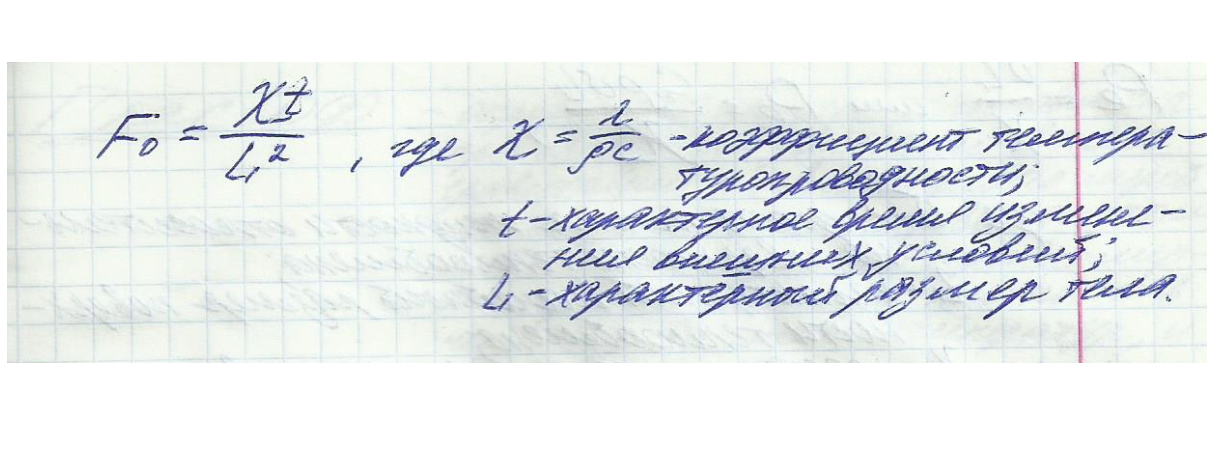 Fo = χt / L², где χ = λ / ρc - коэффициент темпера-
туропроводности;
t - характерное время измене-
ния внешних условий;
L - характерный размер тела.